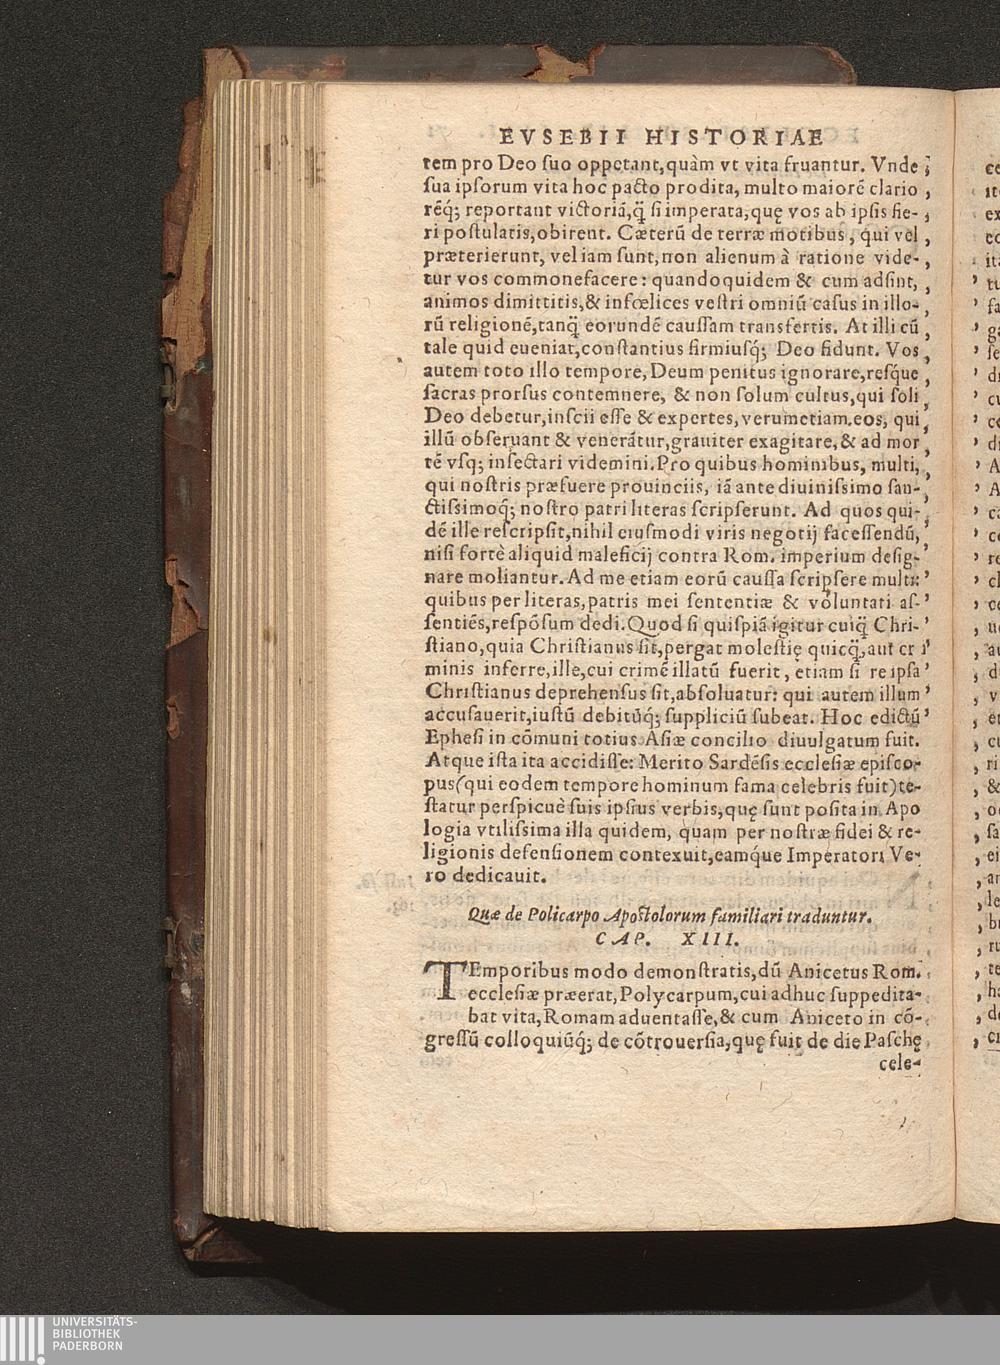 EVSEBII HISTORIAE
tem pro Deo suo oppetant,quàm vt vita fruantur. Vnde ;
sua ipsorum vita hoc pacto prodita, multo maiorē clario ,
rēq́; reportant victoriā,q̈ si imperata,quę vos ab ipsis fie- ,
ri postulatis,obirent. Cæterū de terræ motibus, qui vel ,
præterierunt, vel iam sunt,non alienum à ratione vide- ,
tur vos commonefacere: quandoquidem & cum adsint, ,
animos dimittitis,& infœlices vestri omniū casus in illo- ,
rū religionē,tanq̈ eorundē caussam transfertis. At illi cū ,
tale quid eueniat,constantius firmiusq́; Deo fidunt. Vos ,
autem toto illo tempore, Deum penitus ignorare,resq́ue ,
sacras prorsus contemnere, & non solum cultus,qui soli ,
Deo debetur,inscii esse & expertes,verumetiam.eos, qui ,
illū obseruant & venerātur,grauiter exagitare,& ad mor ,
tē vsq; insectari videmini.Pro quibus hominibus, multi, ,
qui nostris præfuere prouinciis, iā ante diuinissimo san- ,
ctissimoq́; nostro patri literas scripserunt. Ad quos qui- ,
dē ille rescripsit,nihil eiusmodi viris negotij facessendū, '
nisi fortè aliquid maleficij contra Rom. imperium desig- '
nare moliantur. Ad me etiam eorū caussa scripsere multi: '
quibus per literas,patris mei sententiæ & voluntati as- '
sentiēs,respōsum dedi.Quod si quispiā igitur cuiq̈ Chri- '
stiano,quia Christianus sit,pergat molestię quicq̈,aut cr i '
minis inferre,ille,cui crimē illatū fuerit, etiam si re ipsa '
Christianus deprehensus sit,absoluatur: qui autem illum '
accusauerit,iustū debitūq́; suppliciū subeat. Hoc edictū '
Ephesi in cōmuni totius Asiæ concilio diuulgatum fuit.
Atque ista ita accidisse: Merito Sardēsis ecclesiæ episco-
pus(qui eodem tempore hominum fama celebris fuit)te-
statur perspicuè suis ipsius verbis,quę sunt posita in Apo
logia vtilissima illa quidem, quam per nostræ fidei & re-
ligionis defensionem contexuit,eamq́ue Imperatori Ve-
ro dedicauit.
Quæ de Policarpo Apostolorum familiari traduntur.
CAP. XIII.
TEmporibus modo demonstratis,dū Anicetus Rom.
ecclesiæ præerat,Polycarpum,cui adhuc suppedita-
bat vita,Romam aduentasse,& cum Aniceto in cō-
gressū colloquiūq́; de cōtrouersia,quę fuit de die Paschę
cele-
UNIVERSITÄTS-
BIBLIOTHEK
PADERBORN